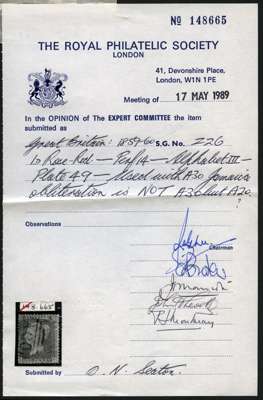 Nº 148665
THE ROYAL PHILATELIC SOCIETY
LONDON
41, Devonshire Place,
London, W1N 1PE
Meeting of 17 MAY 1989
In the OPINION of The EXPERT COMMITTEE the item
submitted as
Great Britain: 1859-60 S.G. No. Z26
1d Rose-Red — Perf 14 — Alphabet III —
Plate 49 — Used with A30 Jamaica
obliteration is NOT A30 but A20.
?
Observations
Chairman
665
Submitted by O. N. Seaton.